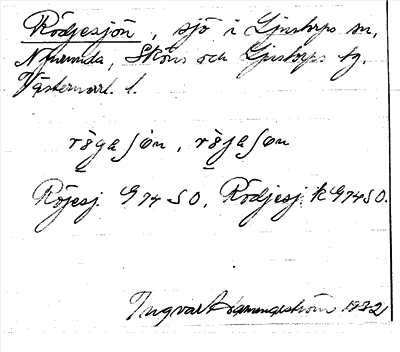 Rödjesjön, sjö i Ljustorps sn,
Njurunda, Sköns och Ljustorps tg.
Västernorrl. l.
rö̀gasjön, rö̀jasjön
Röjesj. G 74 SO, Rödjesj. k G 74 SO.
Ingvar 1932